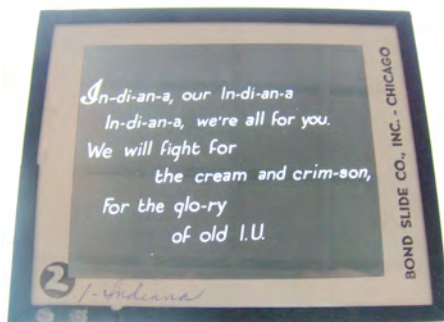 In-di-an-a, our In-di-an-a
In-di-an-a, we're all for you.
We will fight for
the cream and crim-son,
For the glo-ry
of old I.U.
BOND SLIDE CO., INC. - CHICAGO
2
1-Indiana